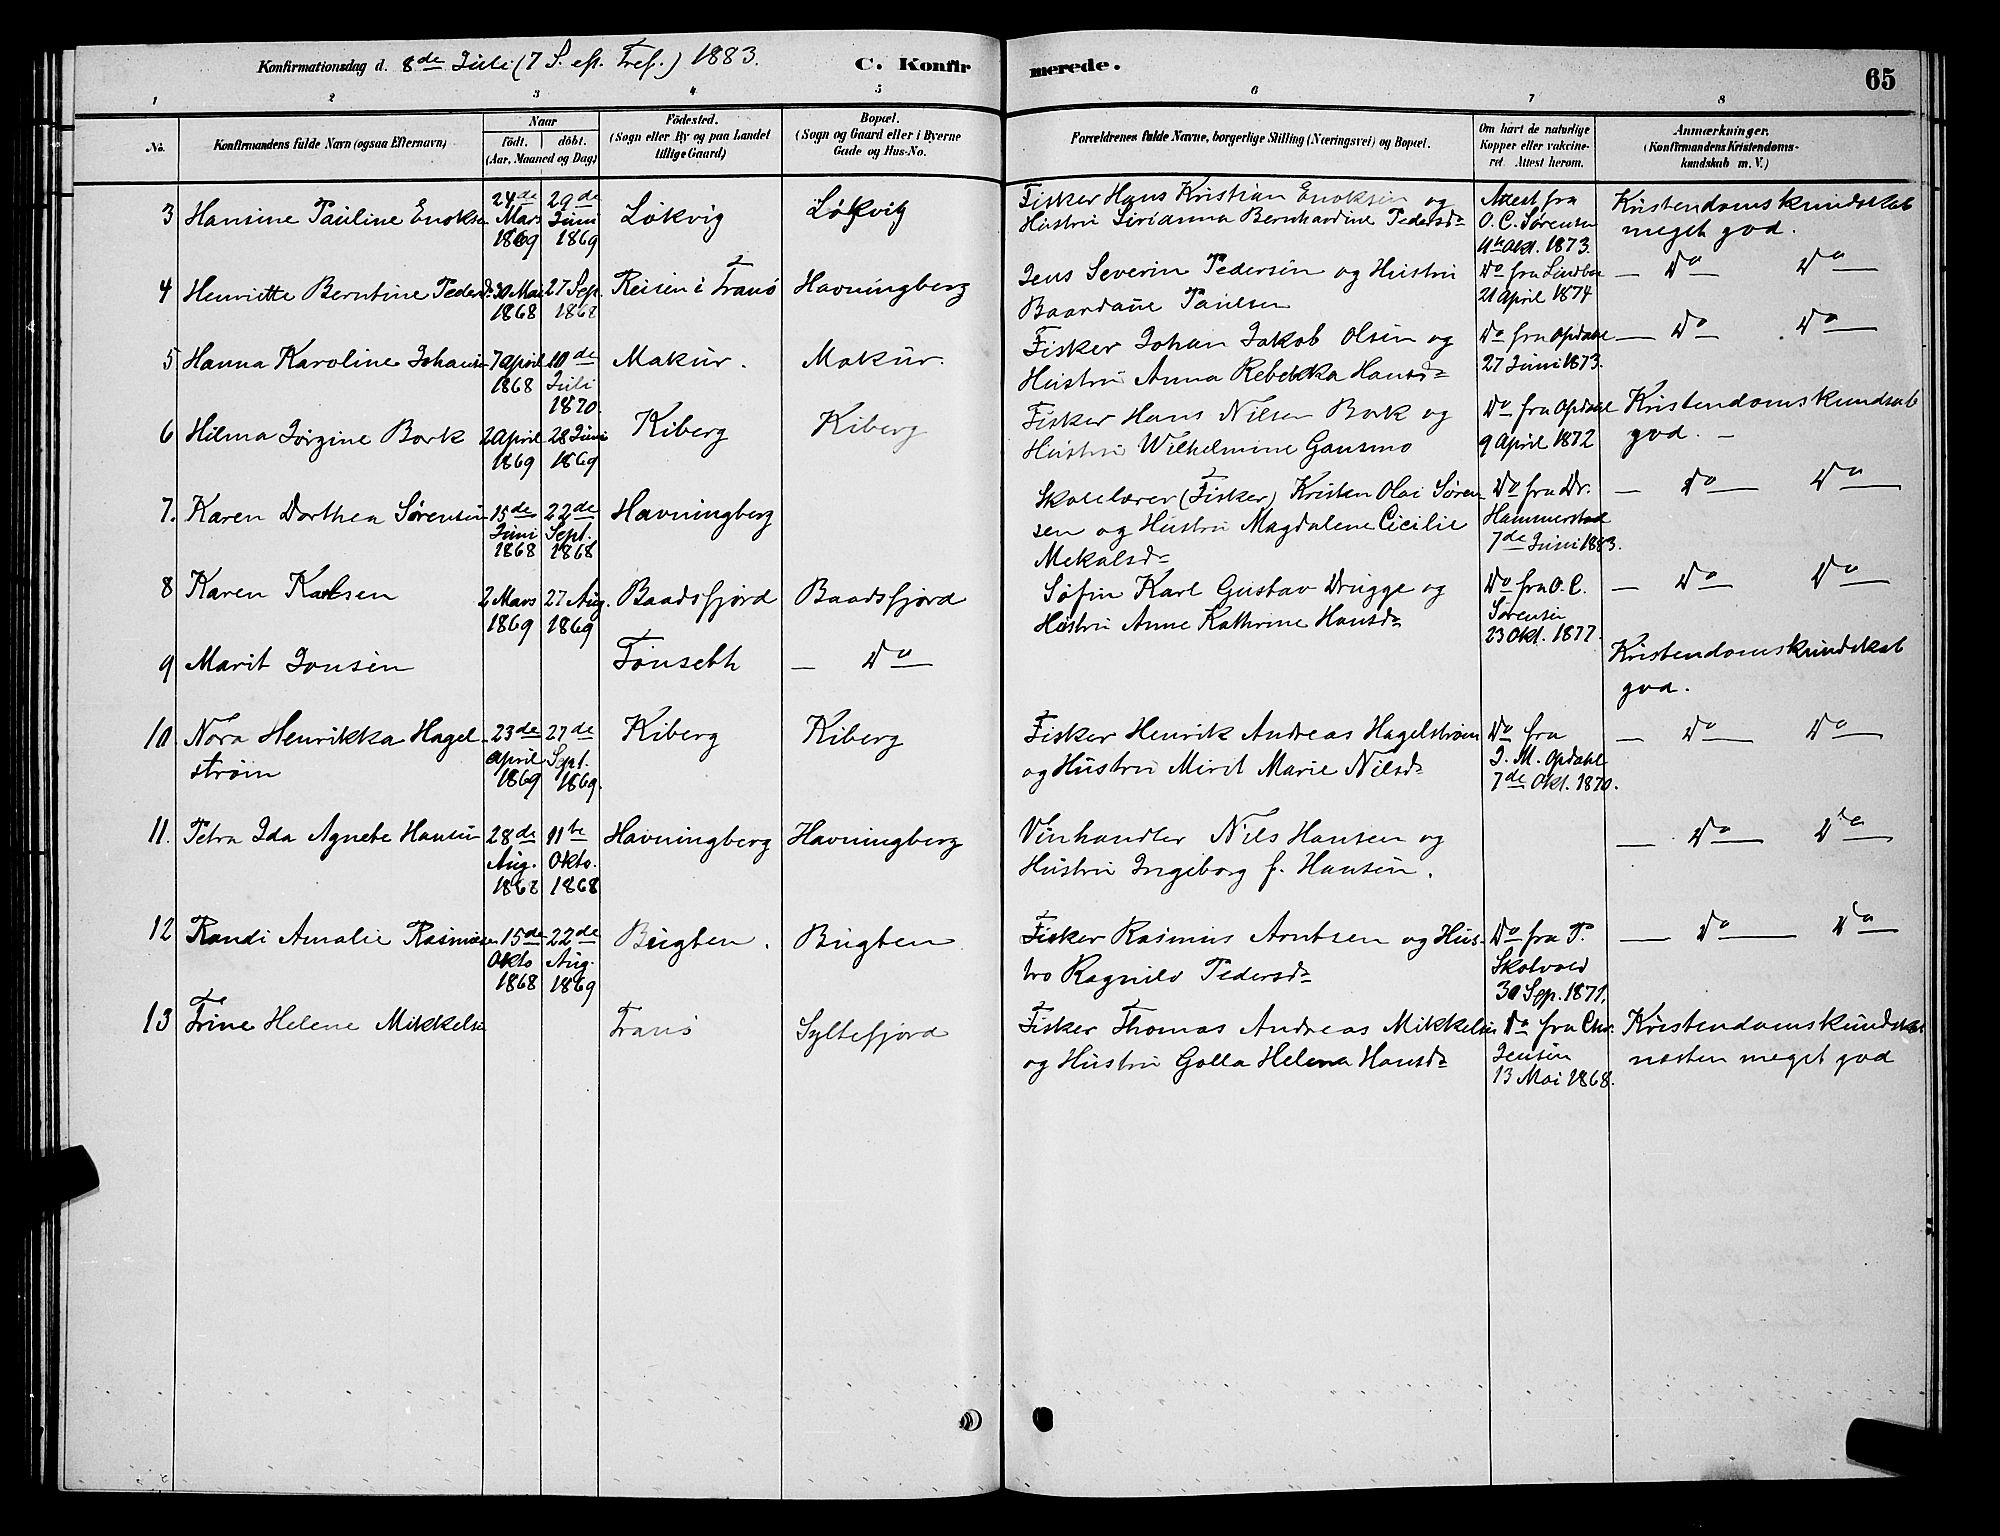 Konfirmationsdag d. 8de Juli (7 S. eft. Tref.) 1883.
C. Konfirmerede.
65
1 2 3 4 5 6 7 8
No.
Konfirmandens fulde Navn (ogsaa Efternavn)
Naar
födt. döbt.
(Aar, Maaned og Dag)
Födested.
(Sogn eller By og paa Landet
tillige Gaard)
Bopæl.
(Sogn og Gaard eller i Byerne
Gade og Hus-No.
Forældrenes fulde Navne, borgerlige Stilling (Næringsvei) og Bopæl.
Om havt de naturlige
Kopper eller vakcine-
ret. Attest herom.
Anmærkninger.
(Konfirmandens Kristendoms-
kundskab m. V.)
3 Hansine Pauline Enoksen
24de Mars 1869
29de Juni 1869
Løkvig
Løkvig
Fisker Hans Kristian Enoksen og
Hustru Sirianna Bernhardine Pedersd.
Attest fra
O. C. Sørensen
4de Okt. 1873.
Kristendomskundskab
meget god.
4 Henriette Berntine Pedersd.
30 Mai 1868
27 Sep. 1868
Reisen i Tranø
Havningberg
Jens Severin Pedersen og Hustru
Baardane Paulsen
Do fra Lindboe
21 April 1874
— Do — Do —
5 Hanna Karoline Johansen
7 April 1868
10de Juli 1870.
Makur.
Makur.
Fisker Johan Jakob Olsen og
Hustru Anna Rebekka Hansd.
Do fra Opdahl
27 Juni 1873.
— Do — Do —
6 Hilma Jørgine Bork
2 April 1869
28 Juni 1869
Kiberg
Kiberg
Fisker Hans Nilsen Bork og
Hustru Wilhelmine Gausmo
Do fra Opdahl
9 April 1872
Kristendomskundsab
god. —
7. Karen Dorthea Sørensen
15de Juni 1868
22de Sept. 1868
Havningberg
Skolelærer (Fisker) Kristen Olai Søren-
sen og Hustru Magdalene Cicilie
Mekalsd.
Do fra Dr.
Hammerstad
7de Juni 1883.
— Do — Do —
8 Karen Karlsen
2 Mars 1869
27 Aug. 1869
Baadsfjord
Baadsfjord
Søfin Karl Gustav Drugge og
Hustru Anne Kathrine Hansd.
Do fra O. C.
Sørensen
23 Okt. 1877.
— Do — Do —
9 Marit Jonsen
Tønseth
— Do —
Kristendomskundskab
god.
10. Nora Henrikka Hagel-
strøm
23de April 1869
27de Sept. 1869.
Kiberg
Kiberg
Fisker Henrik Andreas Hagelstrøm
og Hustru Mirit Marie Nilsd.
Do fra
J. M. Opdahl
7de Okt. 1870.
— Do — Do —
11. Petra Ida Agnete Hansen
28de Aug. 1868
11te Okto. 1868
Havningberg
Havningberg
Vinhandler Nils Hansen og
Hustru Ingeborg f. Hansen.
— Do — Do —
12 Randi Amalie Rasmusen
15de Okto 1868
22de Aug. 1869
Bugten.
Bugten
Fisker Rasmus Arntsen og Hus-
tro Ragnild Pedersd.
Do fra P.
Skotvold
30 Sep. 1871.
— Do — Do —
13 Trine Helene Mikkelsen
Tranø
Syltefjord
Fisker Thomas Andreas Mikkelsen
og Hustru Golla Helena Hansd.
Do fra Chr.
Jensen
13 Mai 1868.
Kristendomskundskab
næsten meget god